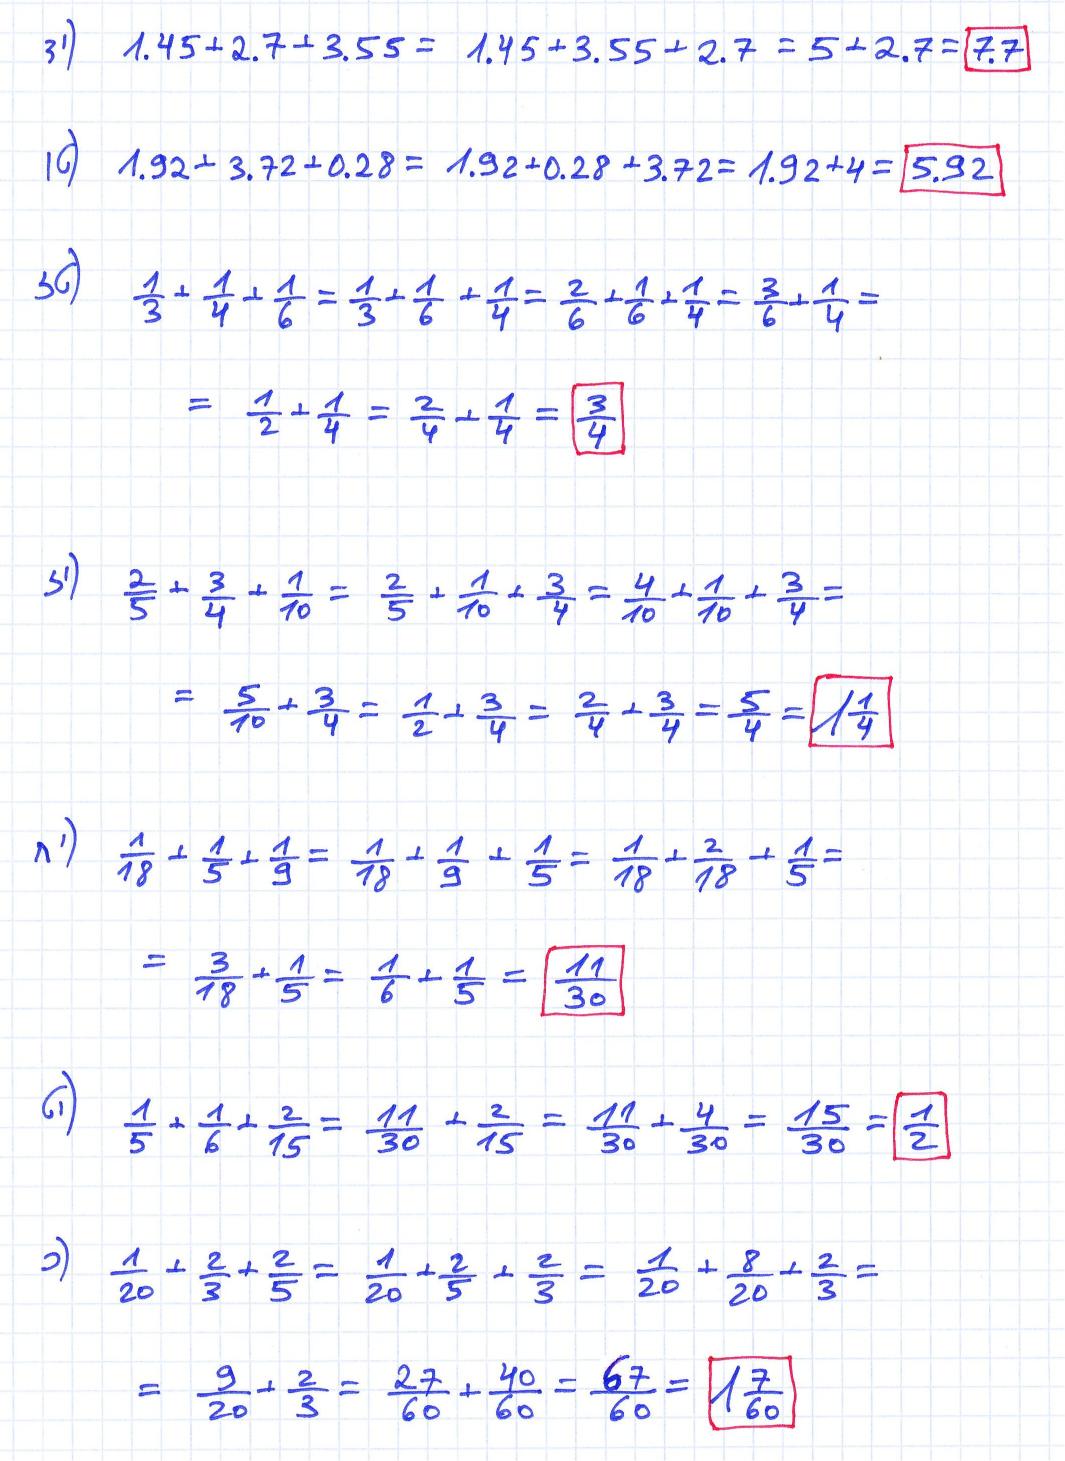 יד) 1.45+2.7+3.55 = 1.45+3.55+2.7 = 5+2.7 = 7.7
טו) 1.92+3.72+0.28 = 1.92+0.28+3.72 = 1.92+4 = 5.92
טז) 1/3 + 1/4 + 1/6 = 1/3 + 1/6 + 1/4 = 2/6 + 1/6 + 1/4 = 3/6 + 1/4 =
= 1/2 + 1/4 = 2/4 + 1/4 = 3/4
יז) 2/5 + 3/4 + 1/10 = 2/5 + 1/10 + 3/4 = 4/10 + 1/10 + 3/4 =
= 5/10 + 3/4 = 1/2 + 3/4 = 2/4 + 3/4 = 5/4 = 1 1/4
יח) 1/18 + 1/5 + 1/9 = 1/18 + 1/9 + 1/5 = 1/18 + 2/18 + 1/5 =
= 3/18 + 1/5 = 1/6 + 1/5 = 11/30
יט) 1/5 + 1/6 + 2/15 = 11/30 + 2/15 = 11/30 + 4/30 = 15/30 = 1/2
כ) 1/20 + 2/3 + 2/5 = 1/20 + 2/5 + 2/3 = 1/20 + 8/20 + 2/3 =
= 9/20 + 2/3 = 27/60 + 40/60 = 67/60 = 1 7/60